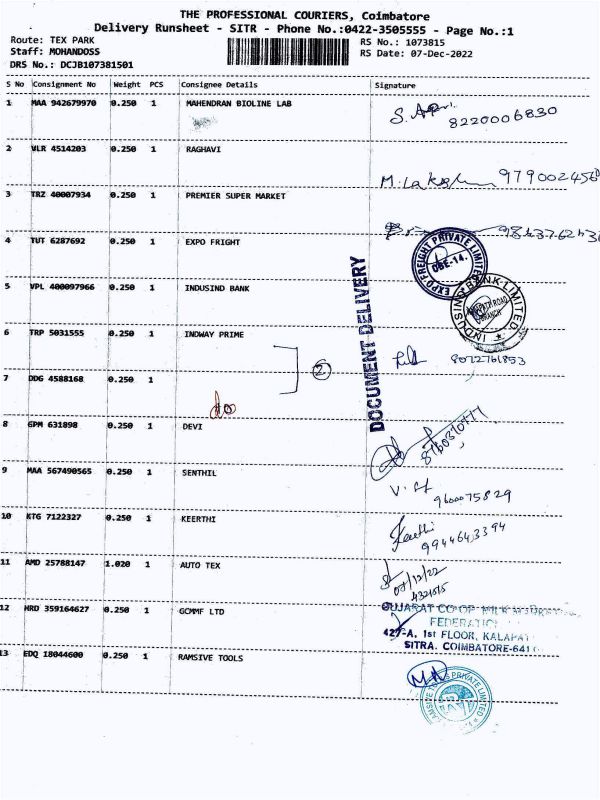 THE PROFESSIONAL COURIERS, Coimbatore
Delivery Runsheet - SITR - Phone No.:0422-3505555 - Page No.:1
Route: TEX PARK
RS No.: 1073815
Staff: MOHANDOSS
RS Date: 07-Dec-2022
DRS No.: DCJB107381501
S No Consignment No Weight PCS Consignee Details Signature
1 MAA 942679970 0.250 1 MAHENDRAN BIOLINE LAB
8220006830
2 VLR 4514203 0.250 1 RAGHAVI
M. 979002456
3 TRZ 40007934 0.250 1 PREMIER SUPER MARKET
4 TUT 6287692 0.250 1 EXPO FRIGHT
EXPO FREIGHT PRIVATE LIMITED
CBE-14.
5 VPL 400097966 0.250 1 INDUSIND BANK
INDUSIND BANK LIMITED
BRANCH
DOCUMENT DELIVERY
6 TRP 5031555 0.250 1 INDWAY PRIME
2
9072761853
7 DDG 4588168 0.250 1
8 GPM 631898 0.250 1 DEVI
9 MAA 567490565 0.250 1 SENTHIL
9600075829
10 KTG 7122327 0.250 1 KEERTHI
Keerthi
9944643394
11 AMD 25788147 1.020 1 AUTO TEX
07/12/22
4321515
12 HRD 359164627 0.250 1 GCMMF LTD
GUJARAT CO OP. MILK
427-A, 1st FLOOR, KALAPAT
SITRA. COIMBATORE-641
13 EDQ 18044600 0.250 1 RAMSIVE TOOLS
PRIVATE LIMITED